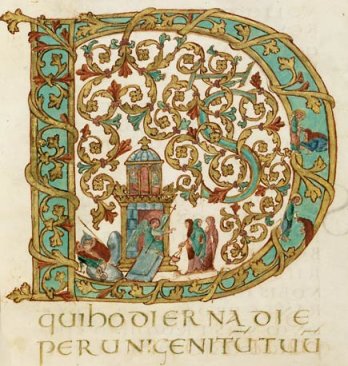 DS
quihodierNadie
PERUNIGENITŪTUŪ